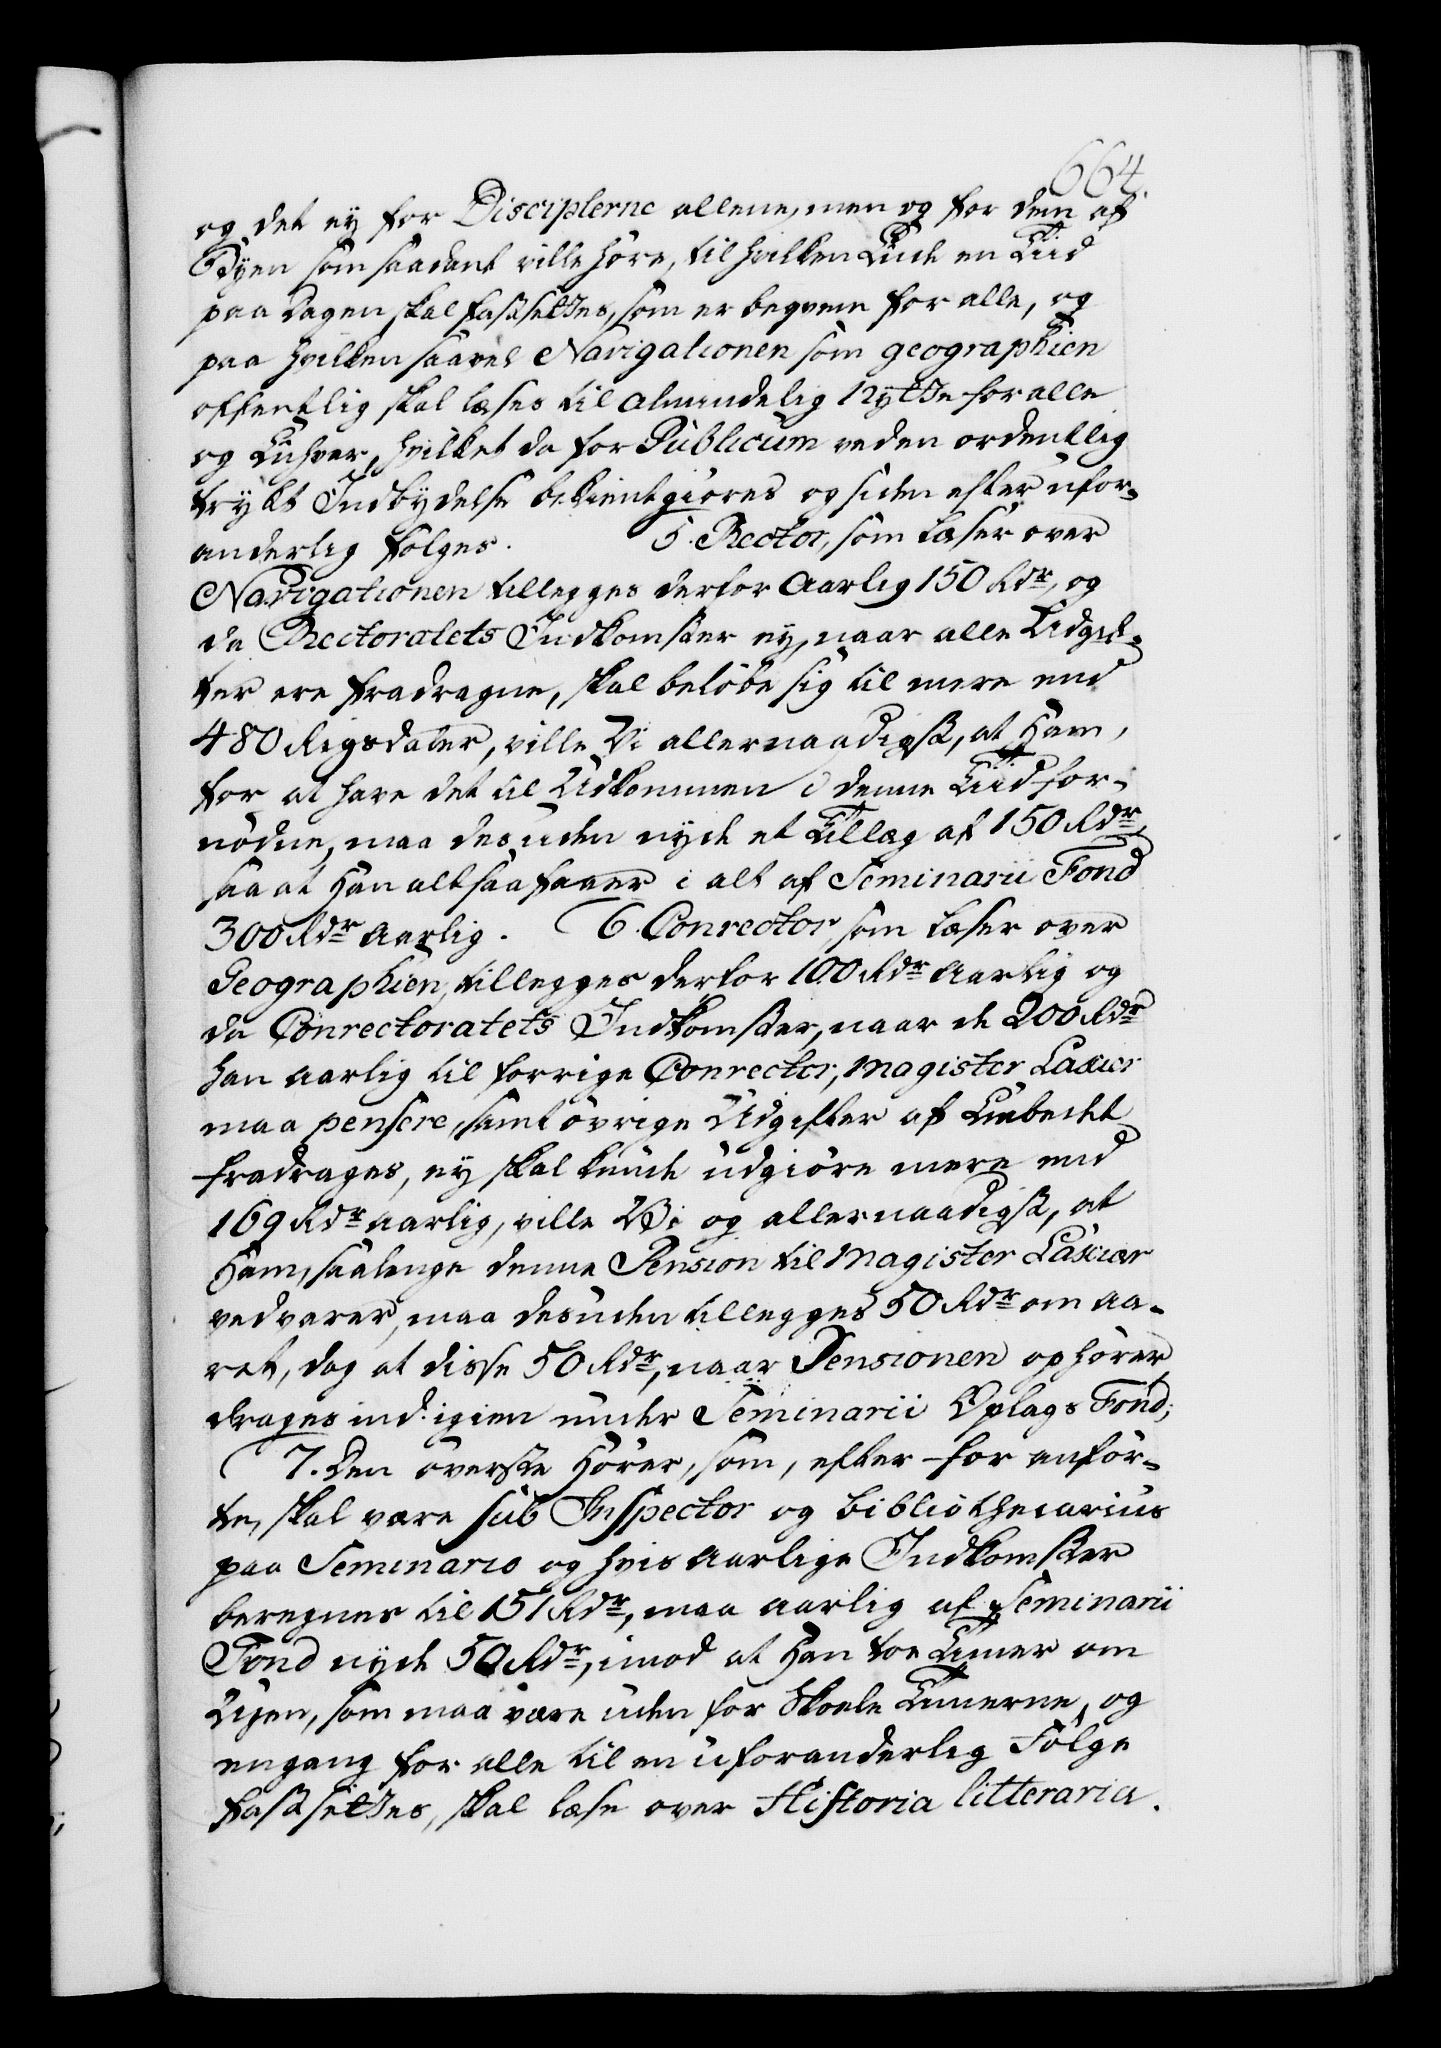 664.
og det ey for Disciplerne allene, men og for dem af
Byen som saadant ville høre, til hvilken Ende en Tiid
paa Dagen skal fastsettes, som er beqvem for alle, og
paa hvilken saavel Navigationen som geographien
offentlig skal læses til almindelig Nytte for alle
og Enhver, hvilket da for Publicum ved en ordentlig
trykt Indbydelse bekientgiøres og siden efter ufor-
anderlig følges. 5. Rector, som læser over
Navigationen tillegges derfor Aarlig 150 Rdr, og
da Rectoratets Indkomster ey, naar alle Udgif-
ter ere fradragne, skal beløbe sig til mere end
480 Rigsdaler, ville Vi allernaadigst, at Ham,
for at have det til Udkommen i denne Tiid for-
nødne, maa desuden nyde et Tillæg af 150 Rdr,
saa at Han altsaa faaer i alt af Seminarii Fond
300 Rdr Aarlig. 6. Conrector, som læser over
Geographien, tillegges derfor 100 Rdr Aarlig og
da Conrectoratets Indkomster, naar de 200 Rdr
han aarlig til forrige Conrector, Magister Laxier
maa pensere, samt øvrige Udgifter af Embedet
fradrages, ey skal kunde udgiøre mere end
169 Rdr aarlig, ville Vi og allernaadigst, at
Ham, saalenge denne Pension til Magister Laxier
vedvarer, maa desuden tillegges 50 Rdr om Aa-
ret, dog at disse 50 Rdr, naar Pensionen ophører,
drages ind igien under Seminarii Oplags Fond;
7. Den øverste Hører, som, efter for anfør-
te, skal være sub Inspector og bibliothecarius
paa Seminario og hvis Aarlige Indkomster
beregnes til 151 Rdr, maa aarlig af Seminarii
Fond nyde 50 Rdr, imod at Han toe Timer om
Ugen, som maa være uden for Skoele Timerne, og
engang for alle til en uforanderlig Følge
fastsettes, skal læse over Historia litteraria.